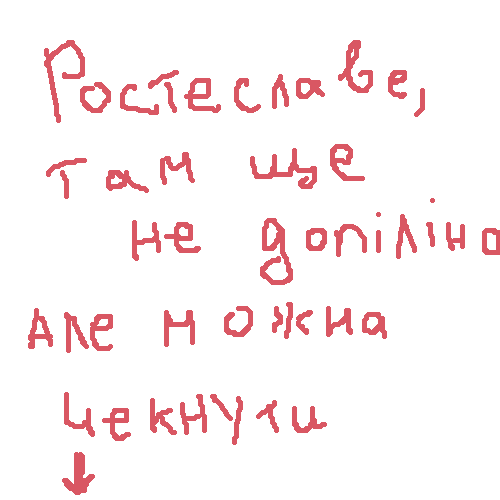 Ростеславе,
там ще
не допіліно
але можна
чекнути